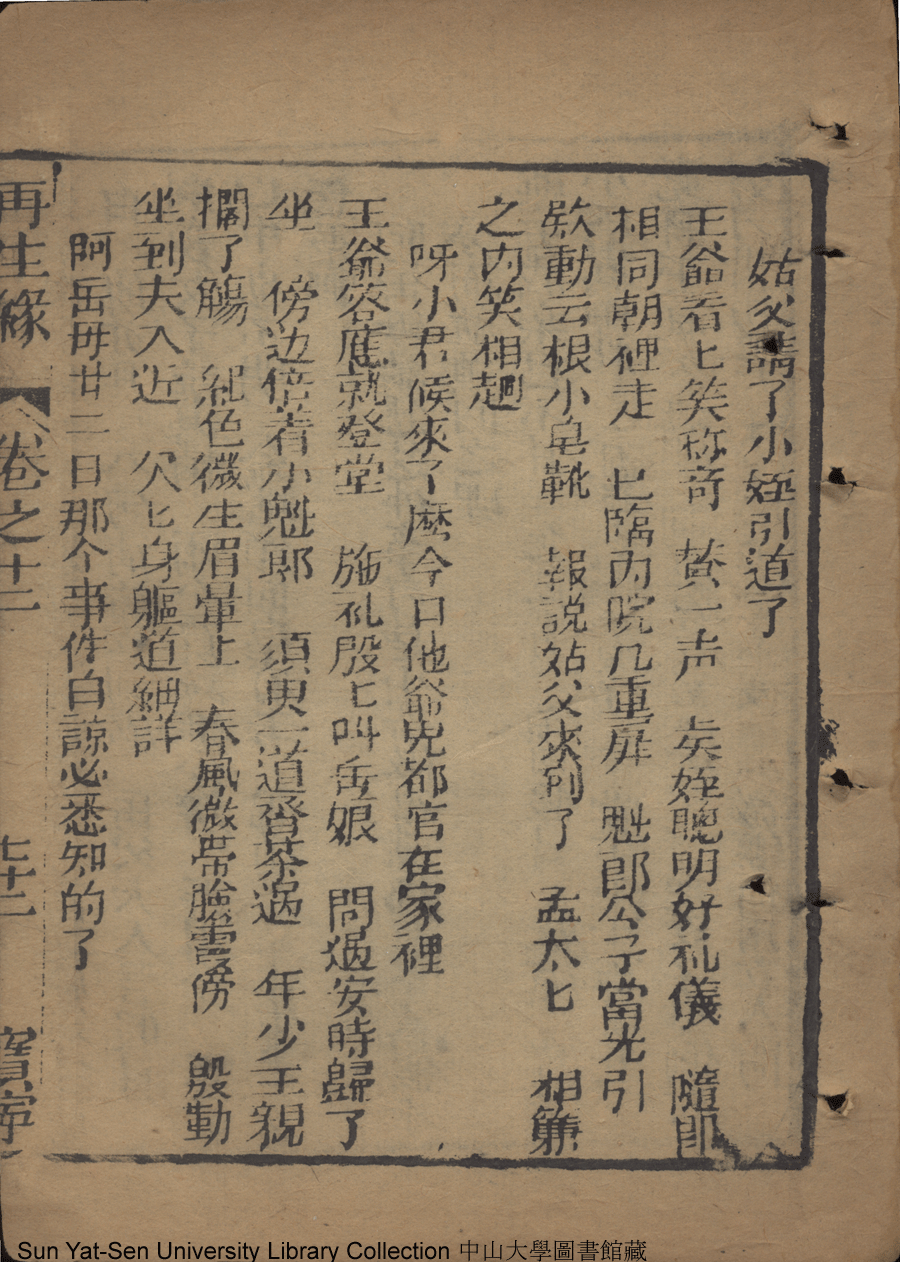 姑父請了小姪引道了
王爺看匕笑称奇　賛一声　矣姪聰明好礼儀　隨即
相同朝裡走　已臨內院几重屏　魁郎公子當先引
欵動云根小皂靴　報說姑父來到了　孟太匕　相簾
之内笑相趨
呀小君候來了麽今口他爺兒都官在家裡
王爺答應就登堂　施礼殷匕叫岳娘　問過安時歸了
坐　傍边倍着小魁郎　須臾一道香茶過　年少王親
擱了觴　紀色微生眉暈上　春風微帶臉雲傍　殷勤
坐到夫人近　欠匕身軀道細詳
阿岳毋廿二日那个事件自諒必悉知的了
再生緣　卷之十二　七十二　寳寧
Sun Yat-Sen University Library Collection 中山大學圖書館藏